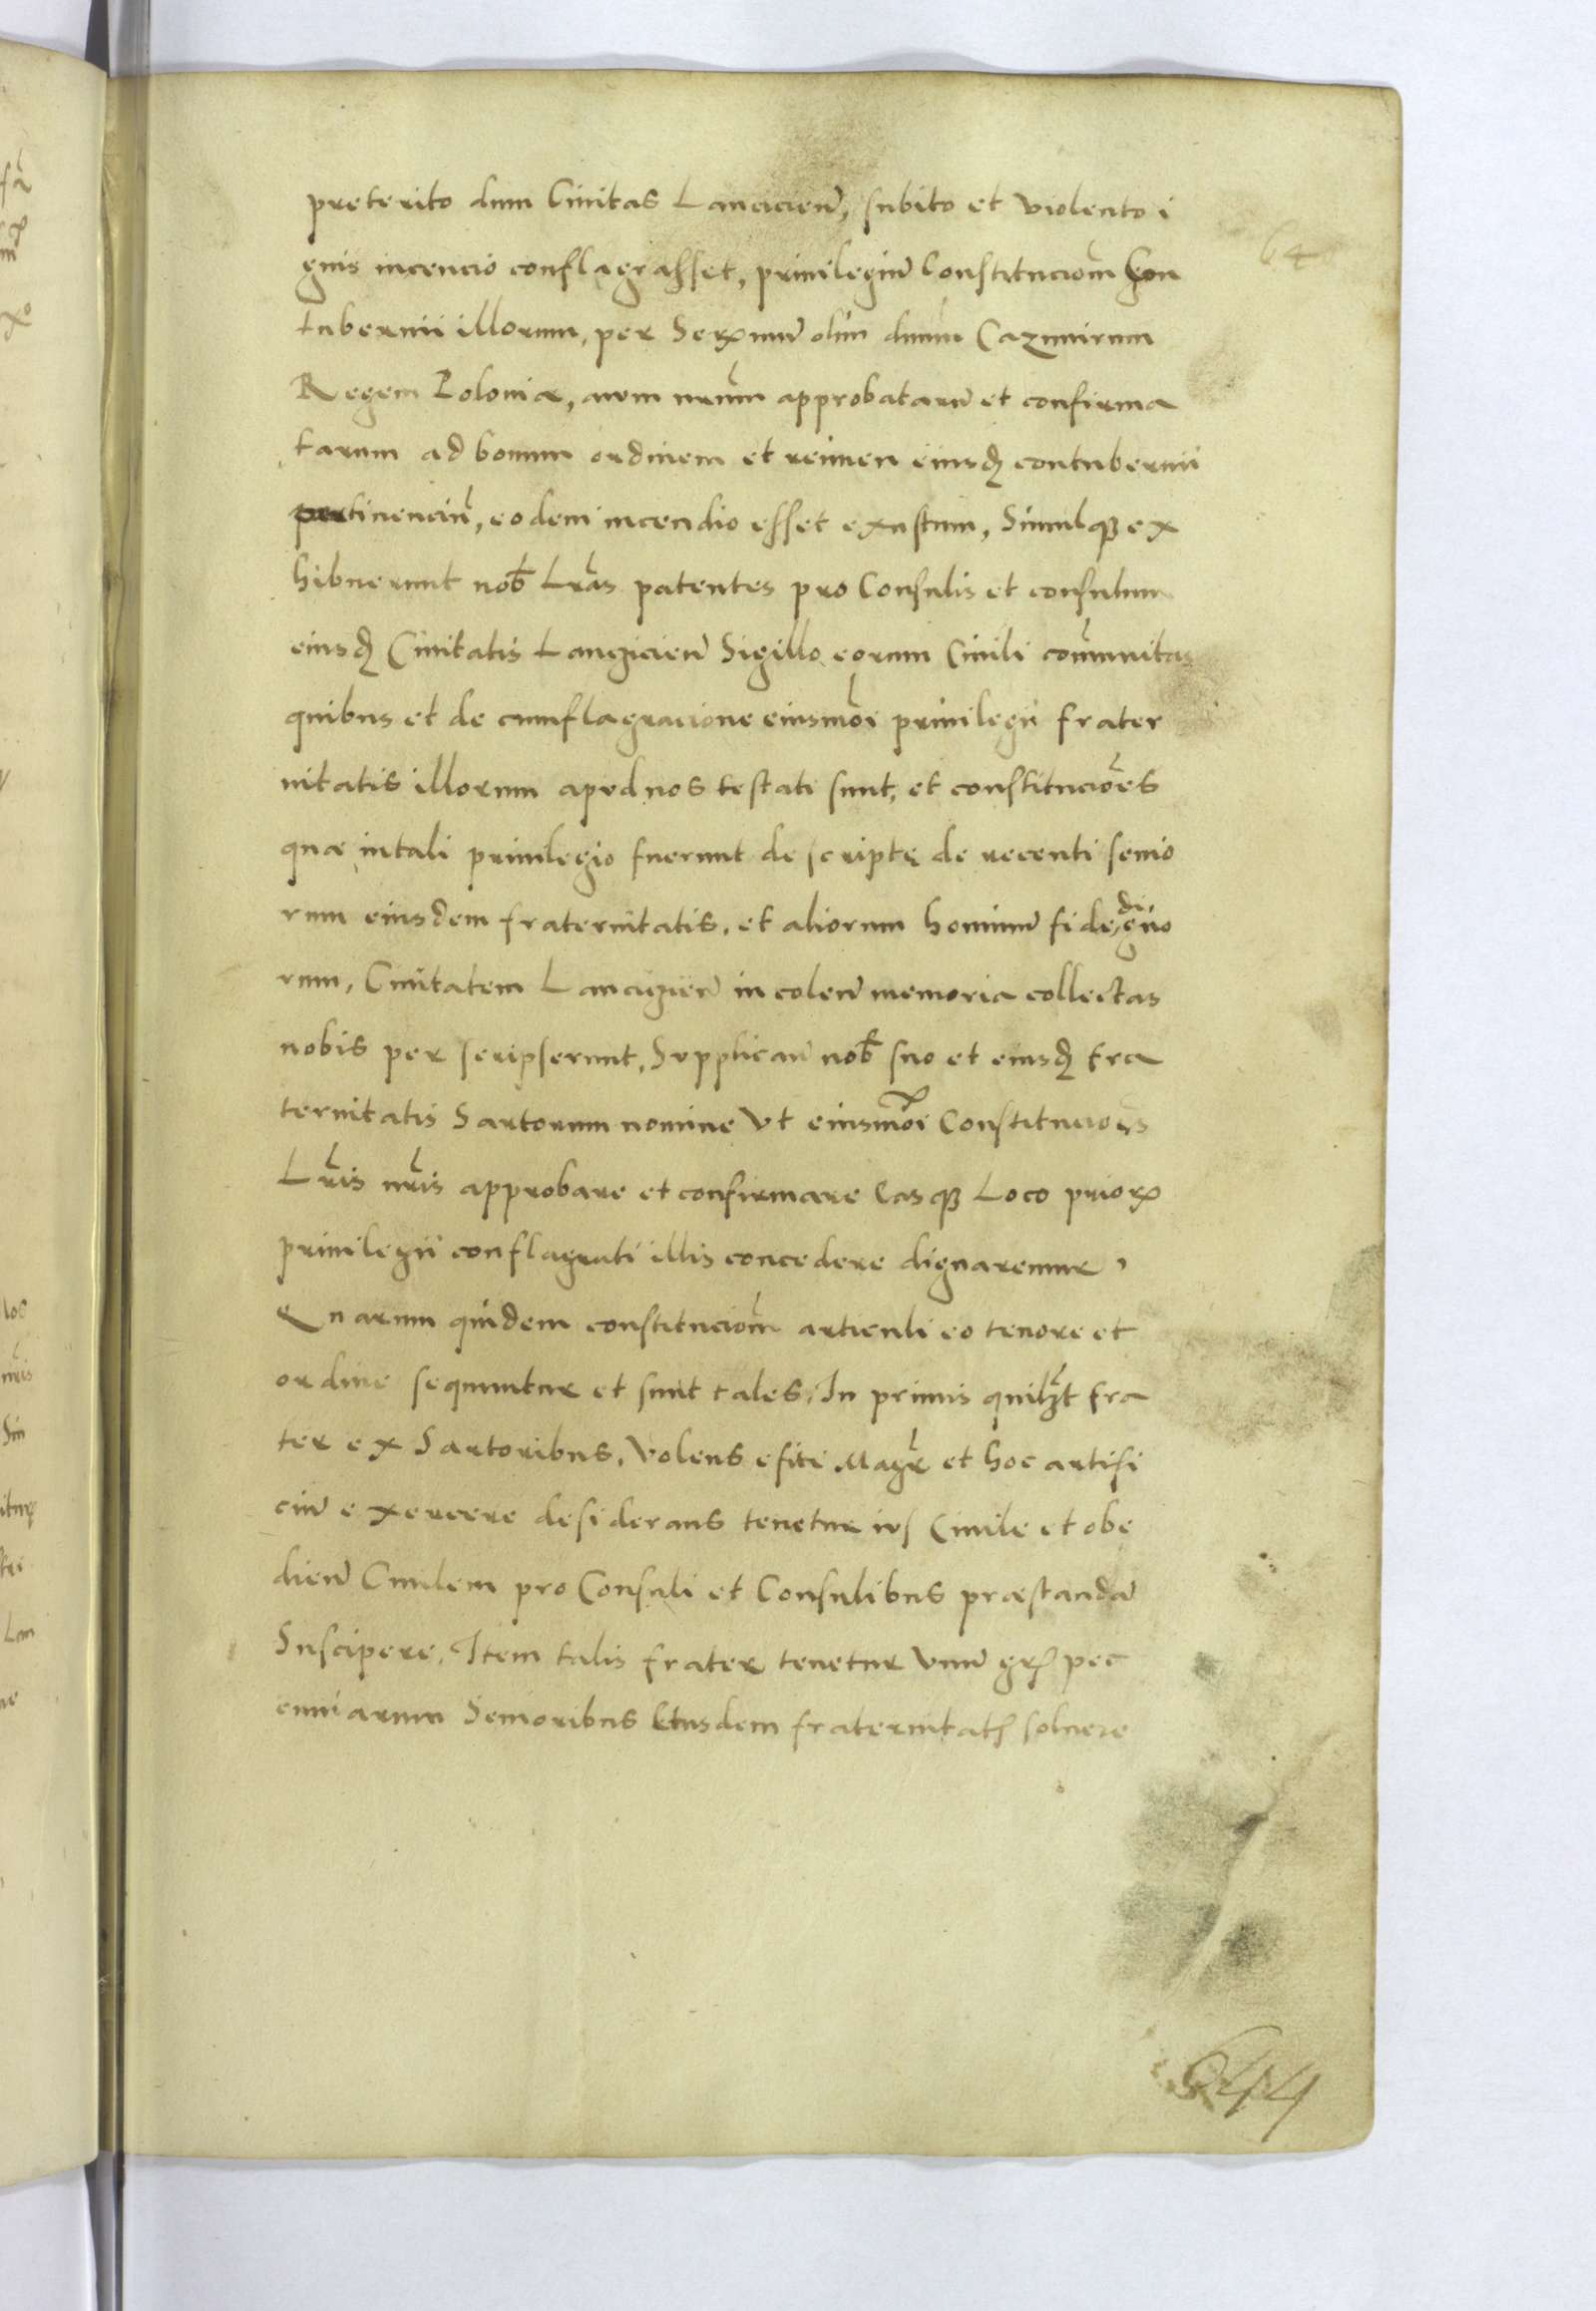 preterito dum Ciuitas Lancicien̄, subito et violento i
gnis incencio conflagrasset, priuilegiū Constitucionm̄ Con
tubernii illorum, per Serꝝmū olim dnūm Cazimirum
Regem Poloniæ, auum nrūm approbatarū et confirma
tarum ad bonum ordinem et reimen eiusdꝫ contubernii
pertinenciū, eodem incendio esset exustum, Simulqꝫ ex
hibuerunt nob̄ Lrās patentes pro Consulis et consulum
eiusdꝫ Ciuitatis Lanczicien̄ Sigillo eorum Ciuili com̄unitas
quibus et de cumflagracione eiusmōi priuilegii frater
nitatis illorum apud nos testati sunt, et constitucioēs
quæ in tali priuilegio fuerunt descriptę de recenti senio
rum eiusdem fraternitatis, et aliorum hominū fide digno
rum, Ciuitatem Lancizien̄ in colen̄ memoria collectas
nobis per scripserunt, Supplican̄ nob̄ suo et eiusdꝫ fra
ternitatis Sartorum nomine Vt eiusmōi Constitucioēs
Lrīs nrīs approbare et confirmare Easqꝫ Loco priorꝝ
priuilegii conflagrati illis concedere dignaremur,
Quarum quidem constitucionm̄ articuli eo tenore et
ordine sequuntur et sunt tales, In primis quilꝫt fra
ter ex Sartoribus, Volens efici Magr̄ et hoc artifi
ciū exercere desiderans tenetur ius Ciuile et obe
dien̄ Ciuilem pro Consuli et Consulibus præstandā
Suscipere, Item talis frater tenetur Vnū grꝭ pec
cuniarum Senioribus Eiusdem fraternitatꝭ soluere
64
644